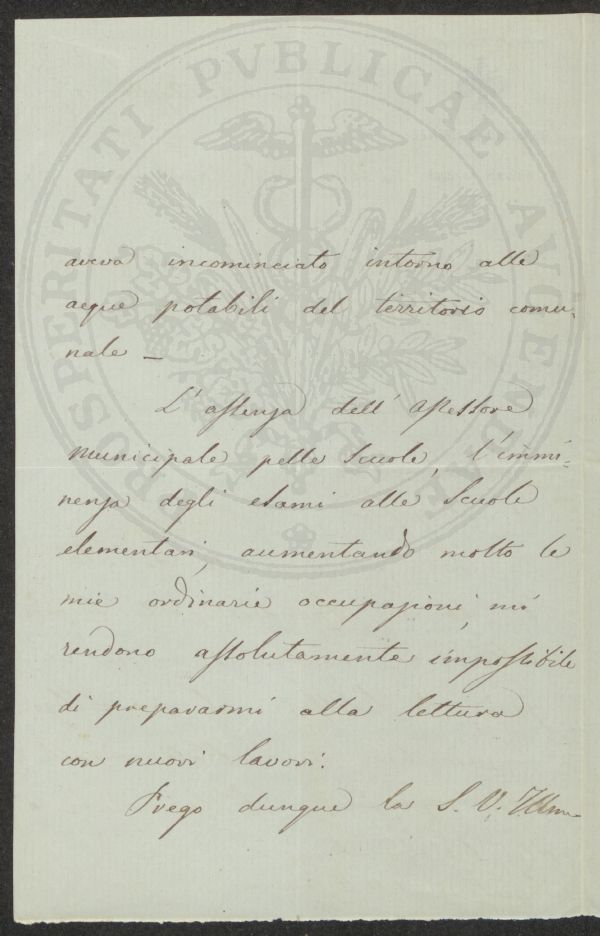 PROSPERITATI PVBLICAE AVGENDAE
aveva incominciato intorno alle
acque potabili del territorio comu-
nale –
L'assenza dell'assessore
municipale pelle scuole, l'immi-
nenza degli esami alle scuole
elementari, aumentando molto le
mie ordinarie occupazioni, mi
rendono assolutamente impossibile
di prepararmi alla lettura
con nuovi lavori.
Prego dunque la S. V. Illma